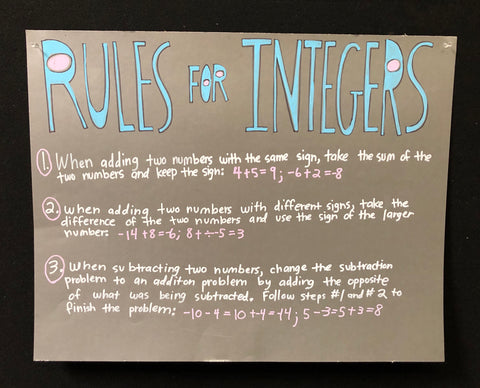 RULES FOR INTEGERS
1. When adding two numbers with the same sign, take the sum of the
two numbers and keep the sign: 4+5=9; -6+2=-8
2. When adding two numbers with different signs, take the
difference of the two numbers and use the sign of the larger
number: -14+8=-6; 8+÷-5=3
3. When subtracting two numbers, change the subtraction
problem to an additon problem by adding the opposite
of what was being subtracted. Follow steps #1 and #2 to
finish the problem: -10-4=10+-4=-14; 5-3=5+3=8